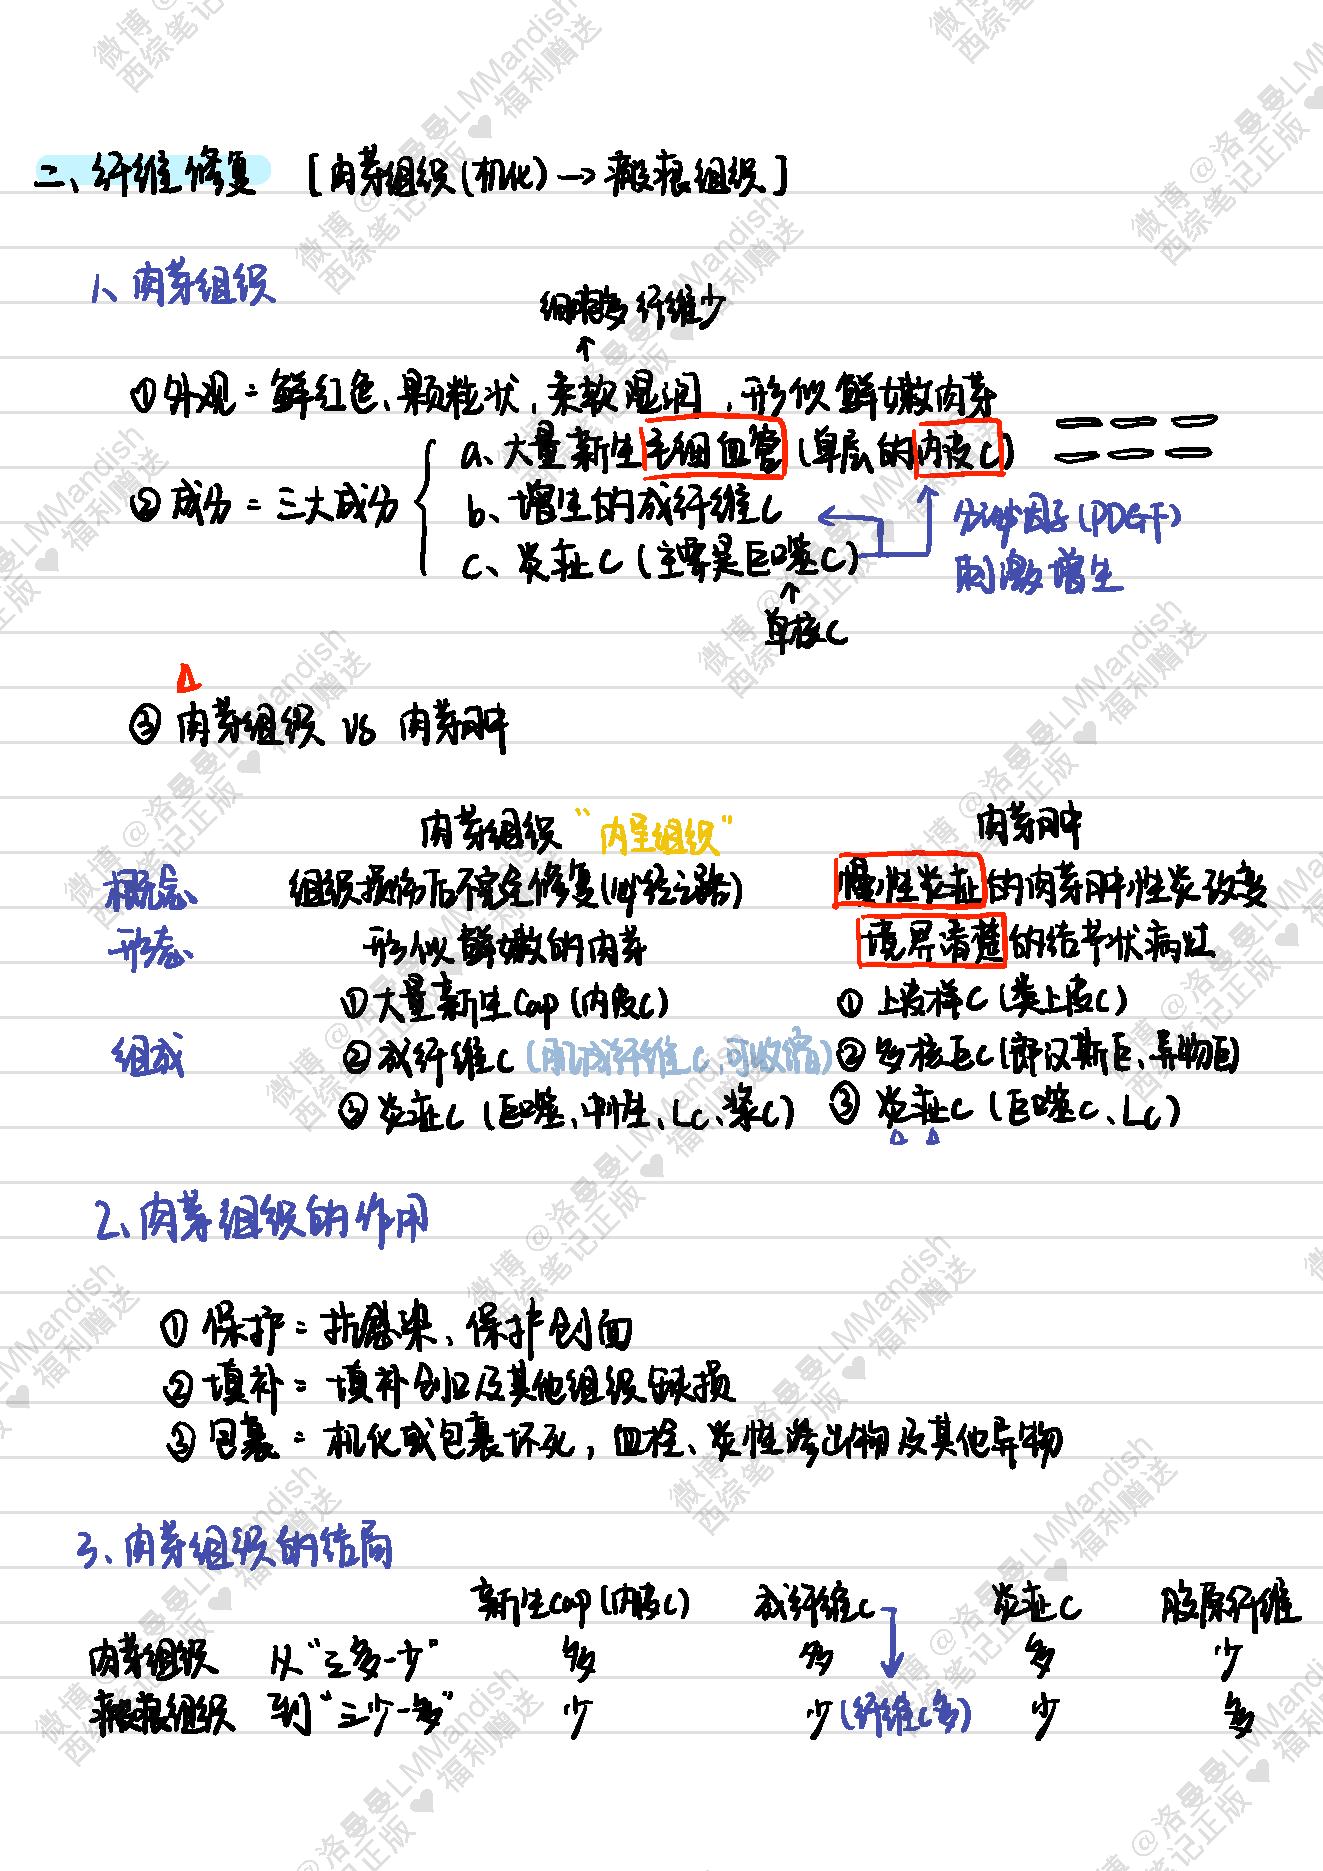 二、纤维修复 [肉芽组织(机化)→瘢痕组织]
1、肉芽组织
细胞多纤维少
↑
①外观=鲜红色、颗粒状,柔软湿润,形似鲜嫩肉芽
②成分=三大成分
a、大量新生毛细血管(单层的内皮C)
b、增生的成纤维C
c、炎症C(主要是巨噬C)
分泌因子(PDGF)
刺激增生
↑
单核C
△
③肉芽组织 VS 肉芽肿
肉芽组织 “内呈组织” 肉芽肿
概念 组织损伤后不完全修复(必经之路) 慢性炎症的肉芽肿性炎改变
形态 形似鲜嫩的肉芽 境界清楚的结节状病灶
①大量新生Cap(内皮C) ①上皮样C(类上皮C)
组成 ②成纤维C(肌成纤维C,可收缩) ②多核巨C(郎汉斯巨、异物巨)
③炎症C(巨噬、中性、LC、浆C) ③炎症C(巨噬C、LC)
△ △
2、肉芽组织的作用
①保护=抗感染、保护创面
②填补=填补创口及其他组织缺损
③包裹=机化或包裹坏死,血栓、炎性渗出物及其他异物
3、肉芽组织的结局
新生Cap(内皮C) 成纤维C 炎症C 胶原纤维
肉芽组织 从“三多一少” 多 多 多 少
瘢痕组织 到“三少一多” 少 少(纤维C多) 少 多
微博 @洛曼曼LMMandish
西综笔记正版♥福利赠送